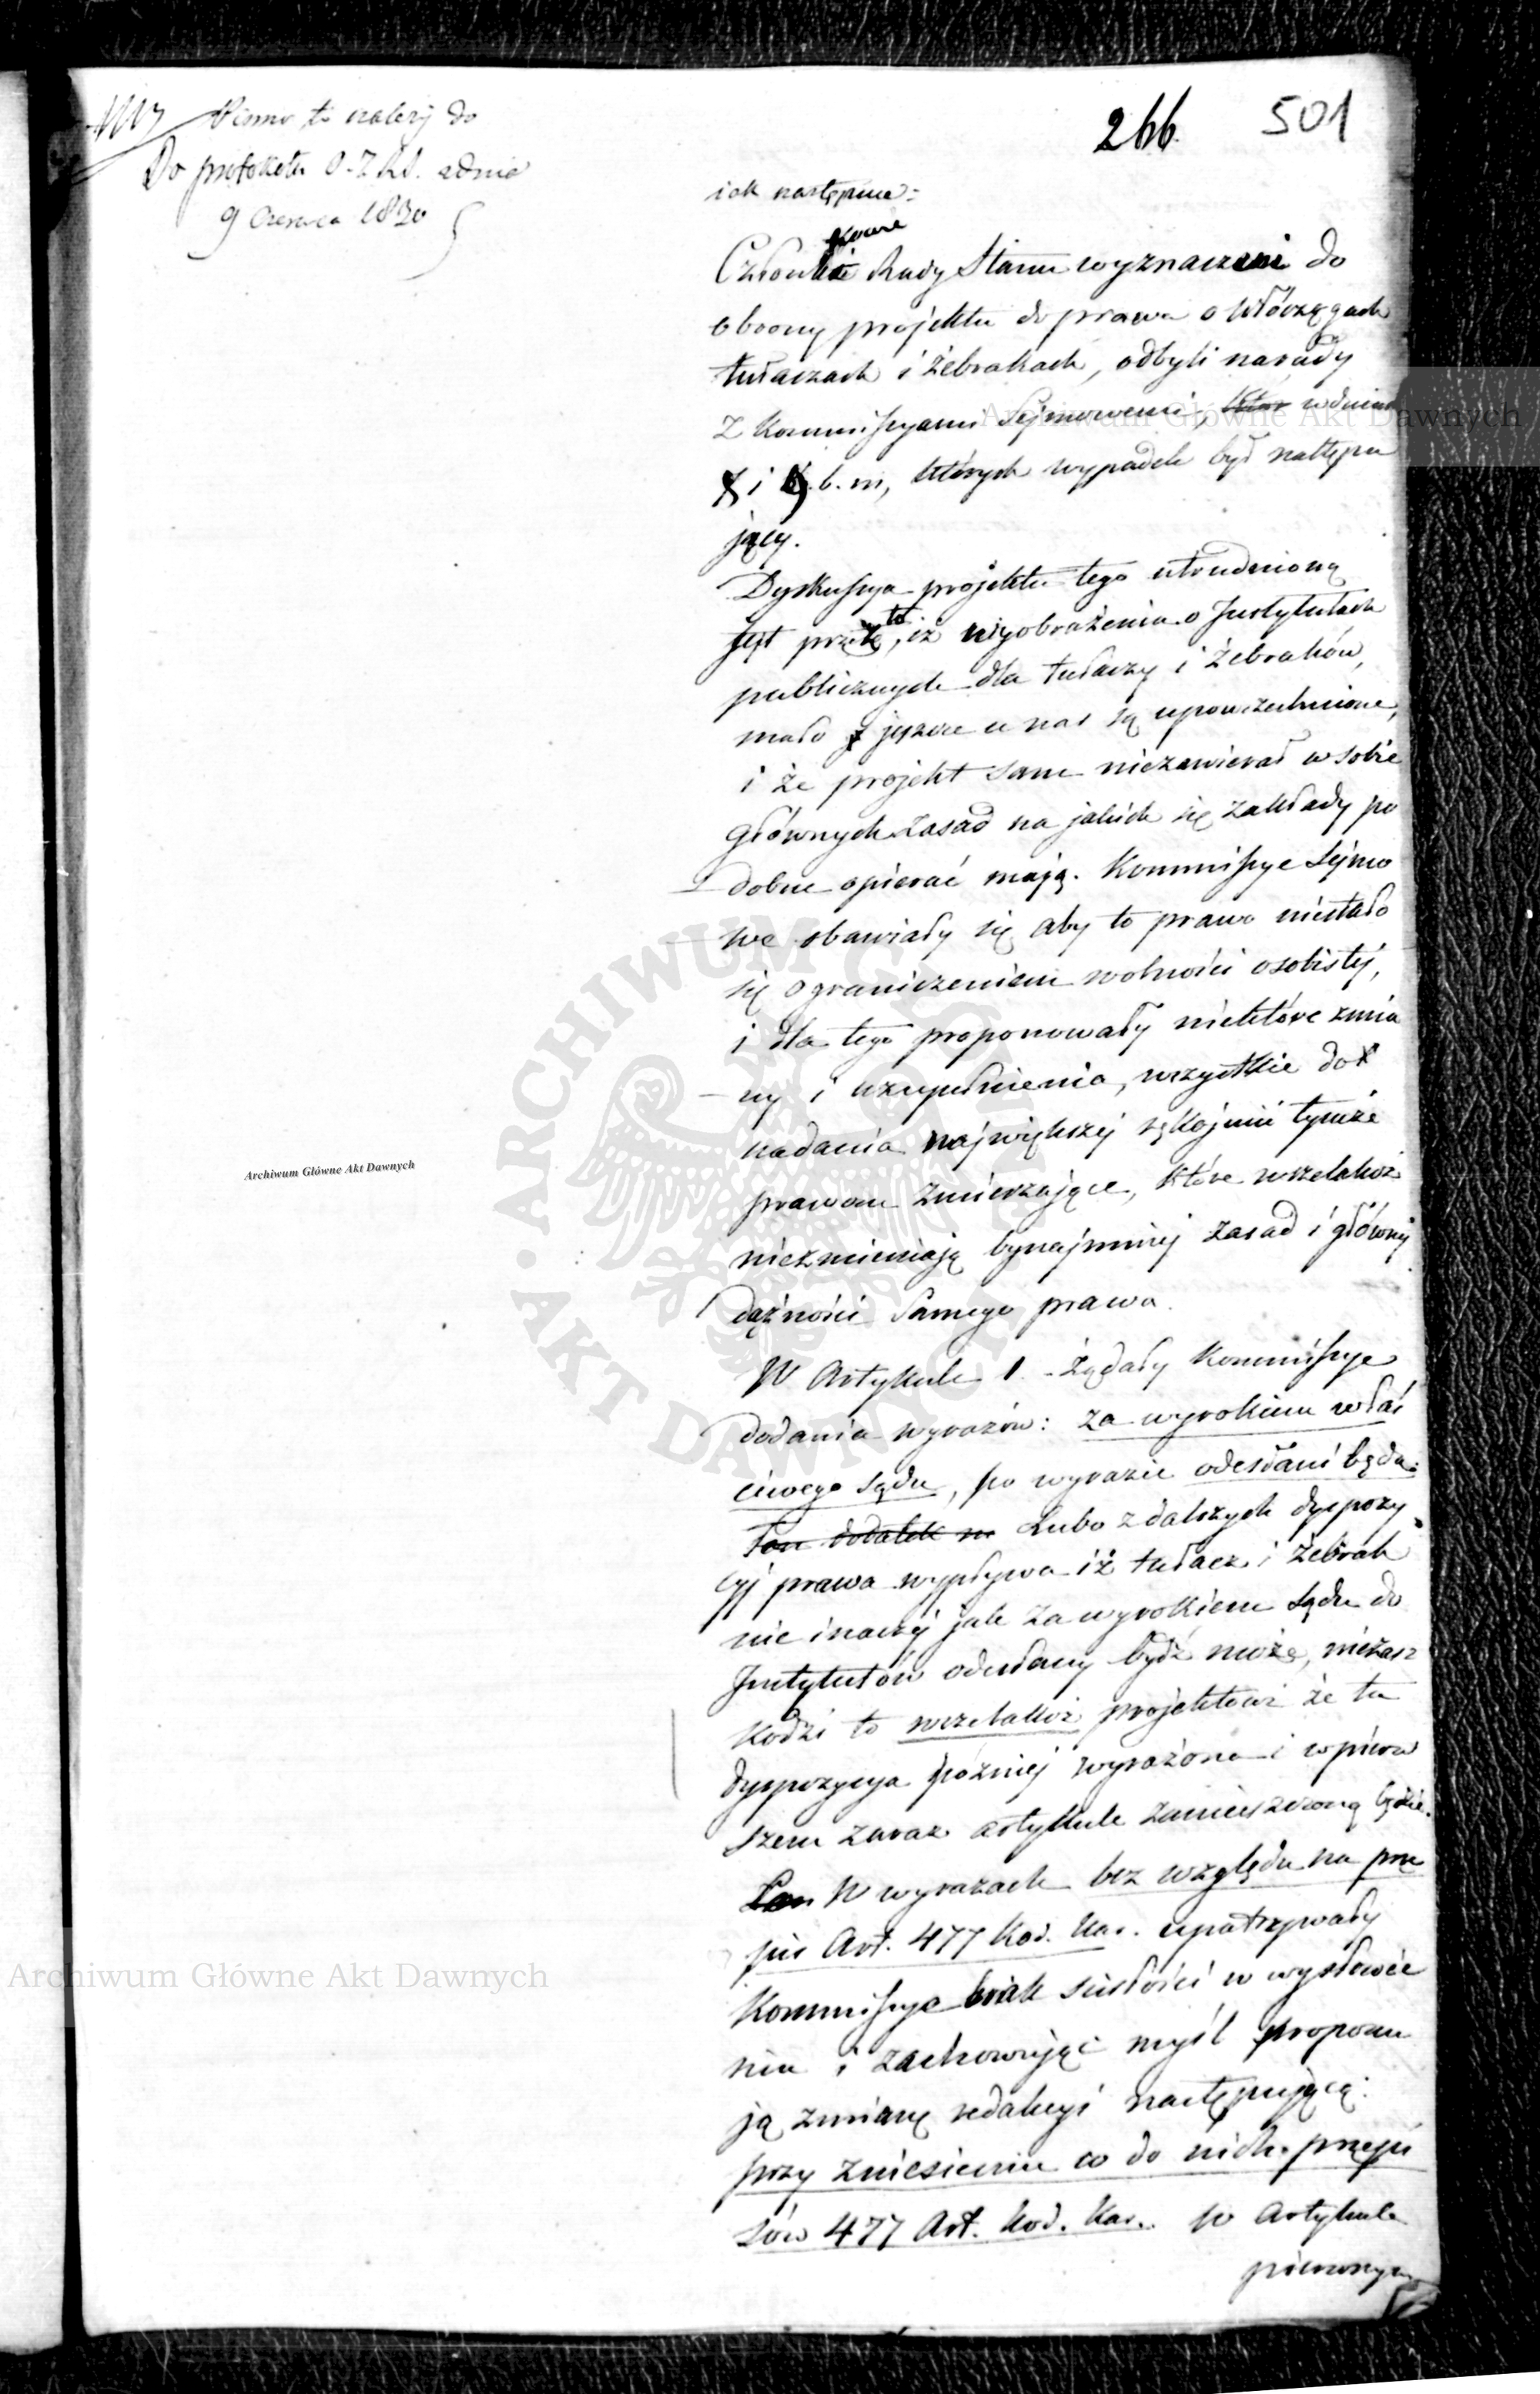 Pismo to należy do
Do protokółu O. Z. R. S. z dnia
9 Czerwca 1830
266. 501
iak następuie:
Członkowie Rady Stanu wyznaczeni do
obrony projektu do prawa o włóczęgach
tułaczach i żebrakach, odbyli narady
z Kommissyami Sejmowemi, w dniach
i b. m, których wypadek był nastepu
jący.
Dyskussya projektu tego utrudnioną
jest przez to, iż wyobrażenia o Instytutach
publicznych dla tułaczy i żebraków,
mało jeszcze u nas są upowszechnione,
i że projekt sam niezawierał w sobie
głównych zasad na jakich się zakłady po
dobne opierać mają. Kommissye Sejmo
we obawiały się aby to prawo niestało
się ograniczeniem wolności osobistéj,
i dla tego proponowały niektóre zmia
ny i uzupełnienia, wszystkie do
nadania największej rękojmii tymże
prawom zmierzające, które wszelakoż
niezmieniają bynajmniej zasad i głównej
dążności samego prawa.
W Artykule 1. żądały Kommissye
dodania wyrazów: za wyrokiem właś
ciwego sądu, po wyrazie odesłani będą.
Ten dodatek Lubo z dalszych dyspozy
cyj prawa wypływa iż tułacz i żebrak
nie inaczej jak za wyrokiem sądu do
Instytutów odesłany bydź może, niezasz
kodzi to wszelakoż projektowi że ta
dyspozycya później wyrażona i w pierw
szem zaraz artykule zamieszczoną będzie.
W wyrazach bez względu na prze
pis Art. 477 Kod. Kar. upatrywały
Kommissye brak ścisłości w wysłowie
niu i zachowując myśl proponu
ją zmianę redakcyi następującą:
przy zniesieniu co do nich przepi
sów 477 Art. Kod. Kar. w Artykule
pierwszym
Archiwum Główne Akt Dawnych
Archiwum Główne Akt Dawnych
Archiwum Główne Akt Dawnych
ARCHIWUM GŁÓWNE
AKT DAWNYCH